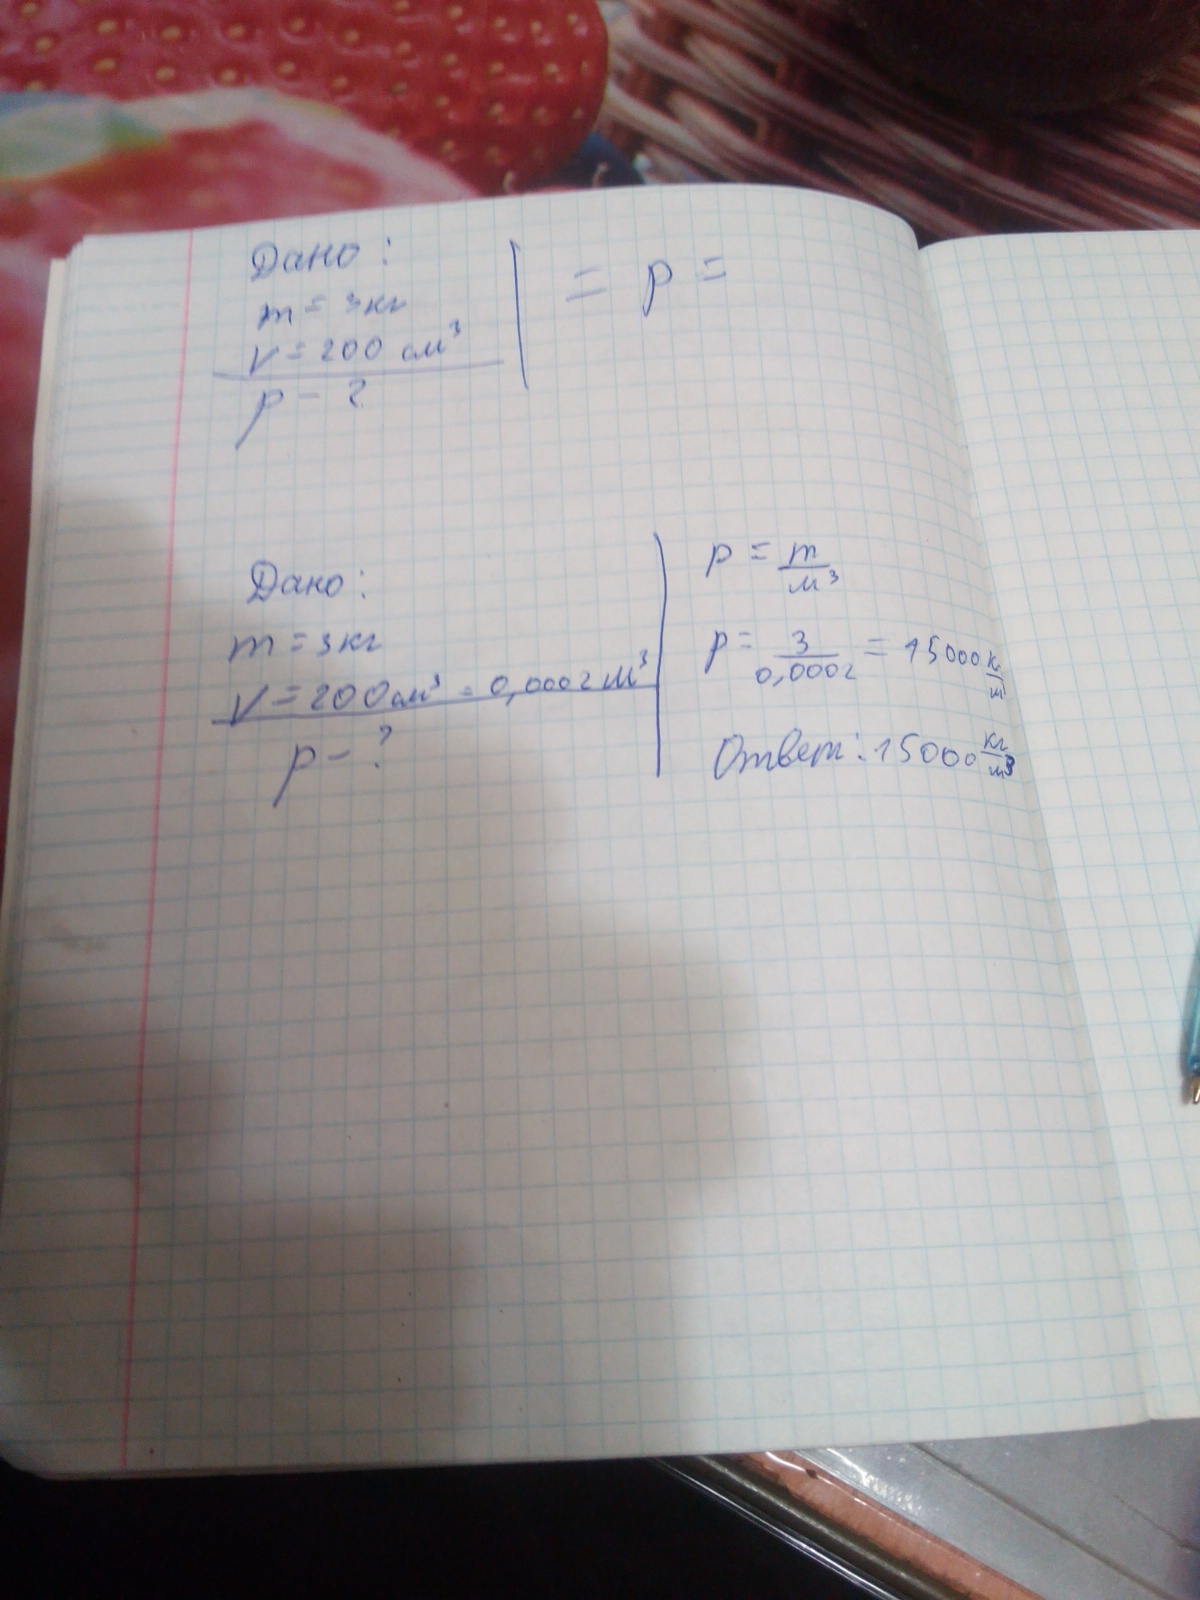 Дано:
m = 3кг
V = 200 см³
p - ?
= p =
Дано:
m = 3кг
V = 200см³ = 0,0002 м³
p - ?
p = m/м³
p = 3/0,0002 = 15000 кг/м
Ответ: 15000 кг/м³